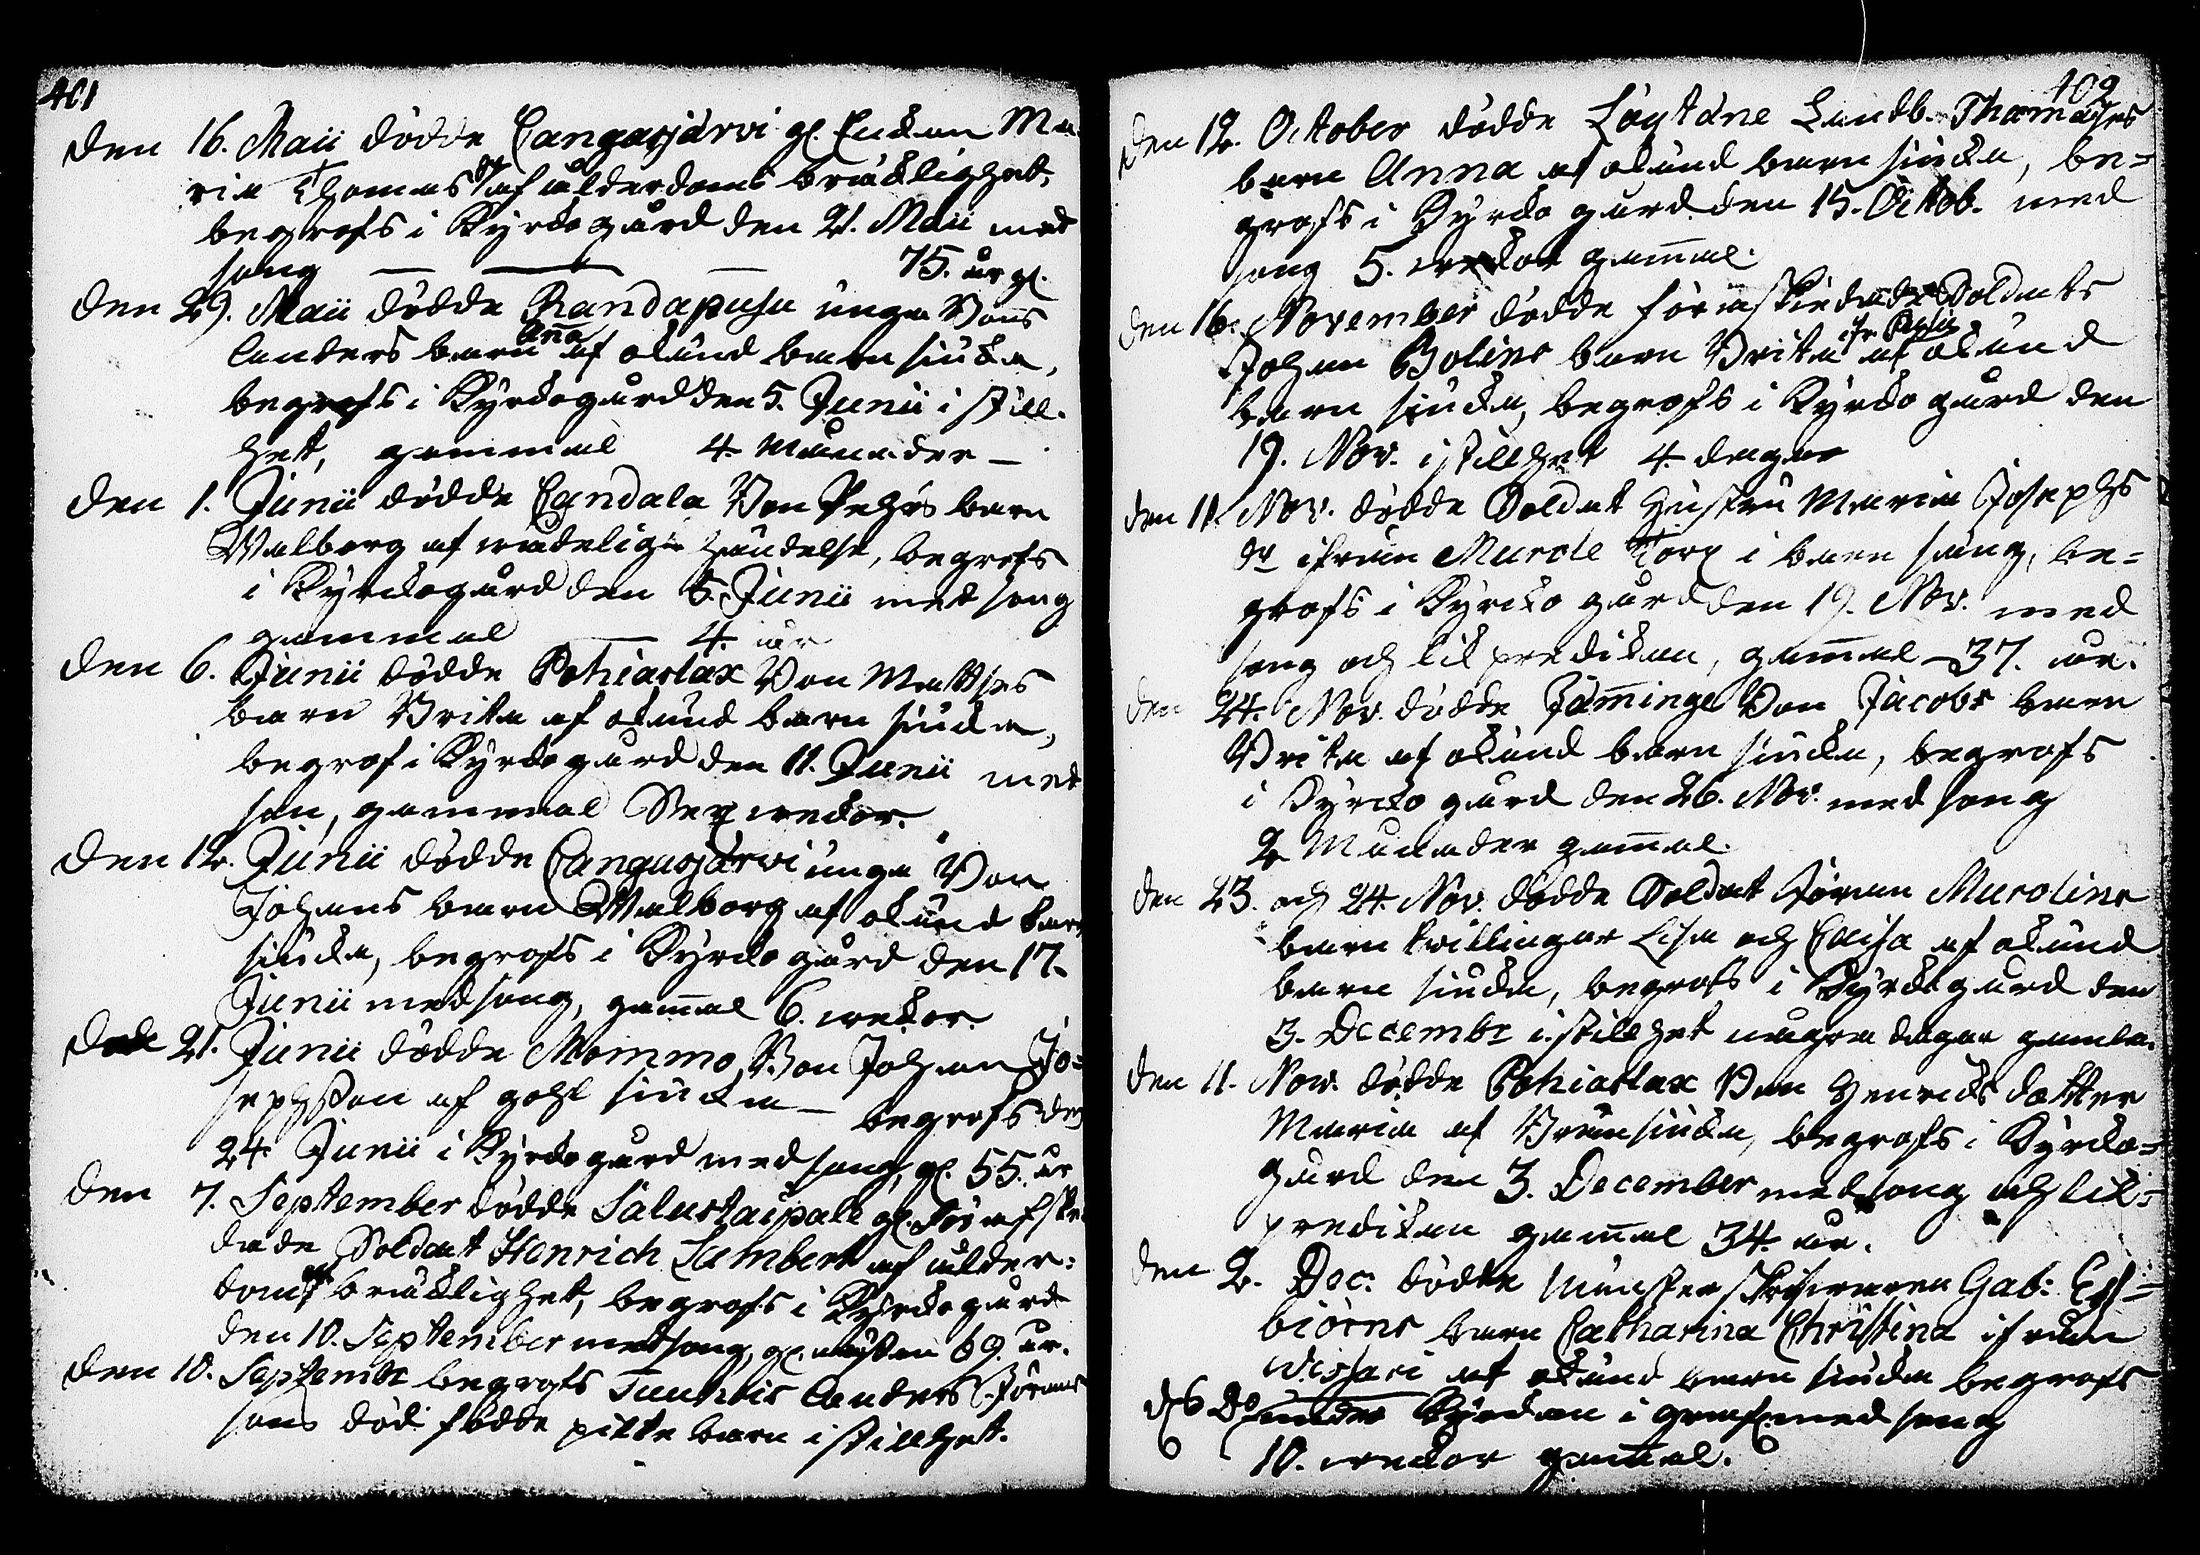 401
den 16. Maii dödde Cangasjärvi gl. Enckan Ma-
ria Thomas dr af ålderdoms bräcklighet,
begrofs i Kyrckogård den 21. Maii med
sång — — — 75. år gl.
den 29. Maii dödde Randapusu unga Bons
Anders barn Aña af okiend barn siucka,
begrofs i Kyrckogård den 5. Junii i still-
het, gammal 4 Månader —
den 1. Junii dödde Candala Bon Pehrs barn
Walborg af wådelig händelse, begrofs
i Kyrckogård den 5. Junii med sång
gammal — 4. år
den 6. Junii dödde Pohiaslax Bon Mattses
barn Brita af okiend barn siucka,
begrof i Kyrckogård den 11. Junii med
sån, gammal Sex weckor.
den 12. Junii dödde Cangasjärvi unga Bon
Johans barn Walborg af okiend barn
siucka, begrofs i Kyrckogård den 17.
Junii med sång, gam̄al 6. weckor.
den 21. Junii dödde Mommo Bon Johan Jo-
sephsson af gohl siucka — begrofs den
24 Junii i Kyrckogård med sång, gl. 55. år
den 7. September dödde Salustaipale gl. För afske-
dade Soldat Henrich Lambert af ålder-
doms bräcklighet, begrofs i Kyrckogård
den 10. September med sång, gl. nästan 69. år.
den 10. Septembr begrofs Anders Jörans
sons död födde pilte barn i stillhet.
402
den 12. October dödde Löytäne Landb. Thomases
barn Anna af okiend barn siucka, be-
grofs i Kyrcko gård den 15. Octob. med
sång 5. weckor gam̄al.
den 16. November dödde förafskiedade Soldats
Johan Bolins barn Brita af okiend
barn siucka, begrofs i Kyrcko gård den
19. Nov. i stillhet 4. dagar
den 11. Nov. dödde Soldat Hustru Maria Josephs
dr ifrån Murole Torp i barn säng, be-
grofs i Kyrcko gård den 19. Nov. med
sång och lik predikan, gam̄al — 37. år.
den 24. Nov. dödde Jäminge Bon Jacobs barn
Brita af okiend barn siucka, begrofs
i Kyrcko gård den 26. Nov. med sång
2 Månader gam̄al.
den 23. och 24. Nov. dödde Soldat Jöran Murolins
barn twillingar Lisa och Caisa af okiend
barn siucka, begrofs i Kyrckogård den
3. Decembr i stillhet några dagar gamla.
den 11. Nov. dödde Pohiaslax Bon Henrichs dotter
Maria af Brunsiucka, begrofs i Kyrcko-
gård den 3. December med sång och lik-
predikan gam̄al 34. år.
den 2. Dec. dödde Munster skrifwaren Gab: Es-
biörns barn Catharina Christina ifrån
Wissari af okiend barn siucka begrofs
d. 6 Do under Kyrckan i graf med sång
10. weckor gam̄al.